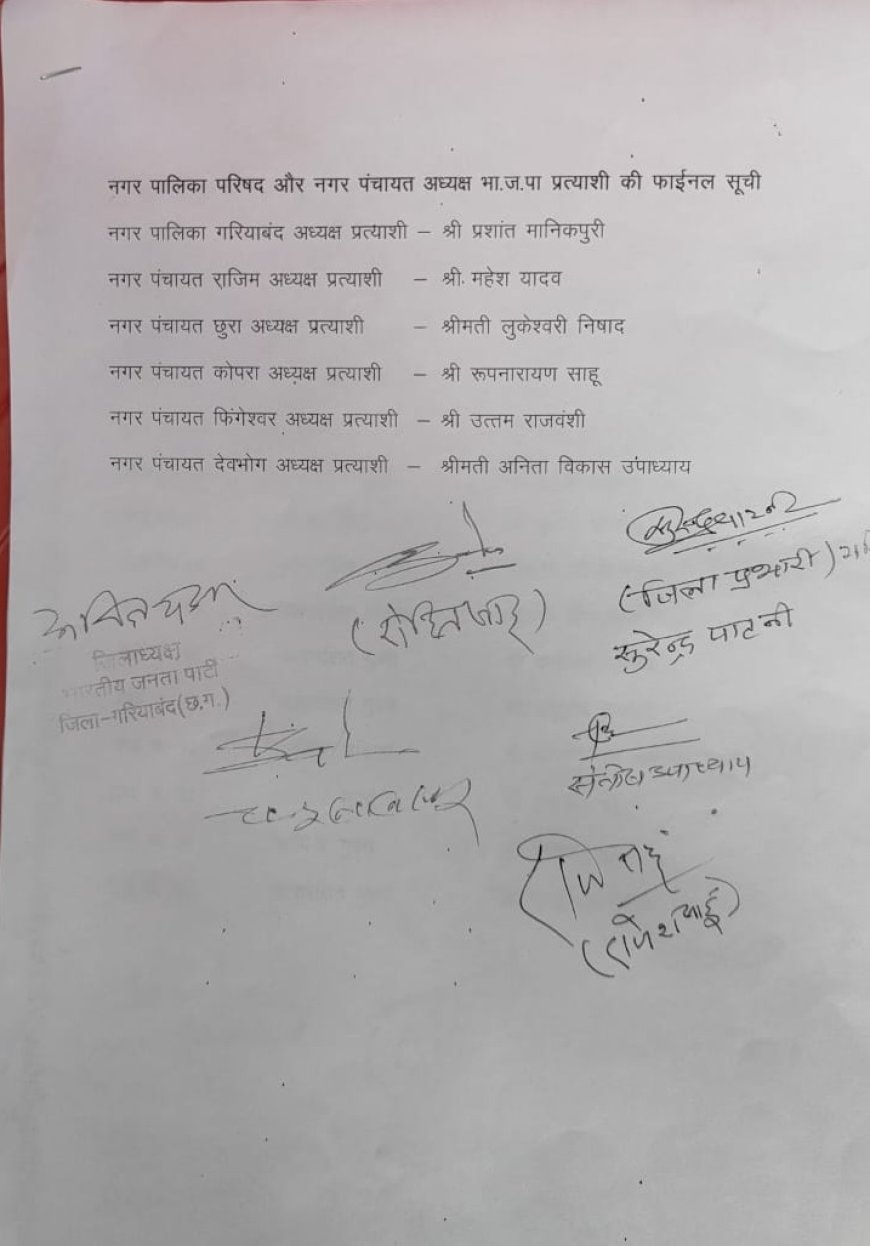 नगर पालिका परिषद और नगर पंचायत अध्यक्ष भा.ज.पा प्रत्याशी की फाईनल सूची
नगर पालिका गरियाबंद अध्यक्ष प्रत्याशी – श्री प्रशांत मानिकपुरी
नगर पंचायत राजिम अध्यक्ष प्रत्याशी – श्री. महेश यादव
नगर पंचायत छुरा अध्यक्ष प्रत्याशी – श्रीमती लुकेश्वरी निषाद
नगर पंचायत कोपरा अध्यक्ष प्रत्याशी – श्री रूपनारायण साहू
नगर पंचायत फिंगेश्वर अध्यक्ष प्रत्याशी – श्री उत्तम राजवंशी
नगर पंचायत देवभोग अध्यक्ष प्रत्याशी – श्रीमती अनिता विकास उपाध्याय
(जिला प्रभारी)
सुरेन्द्र पाटनी
जिलाध्यक्ष
भारतीय जनता पार्टी
जिला-गरियाबंद(छ.ग.)
उपाध्याय
(राजेश साहू)